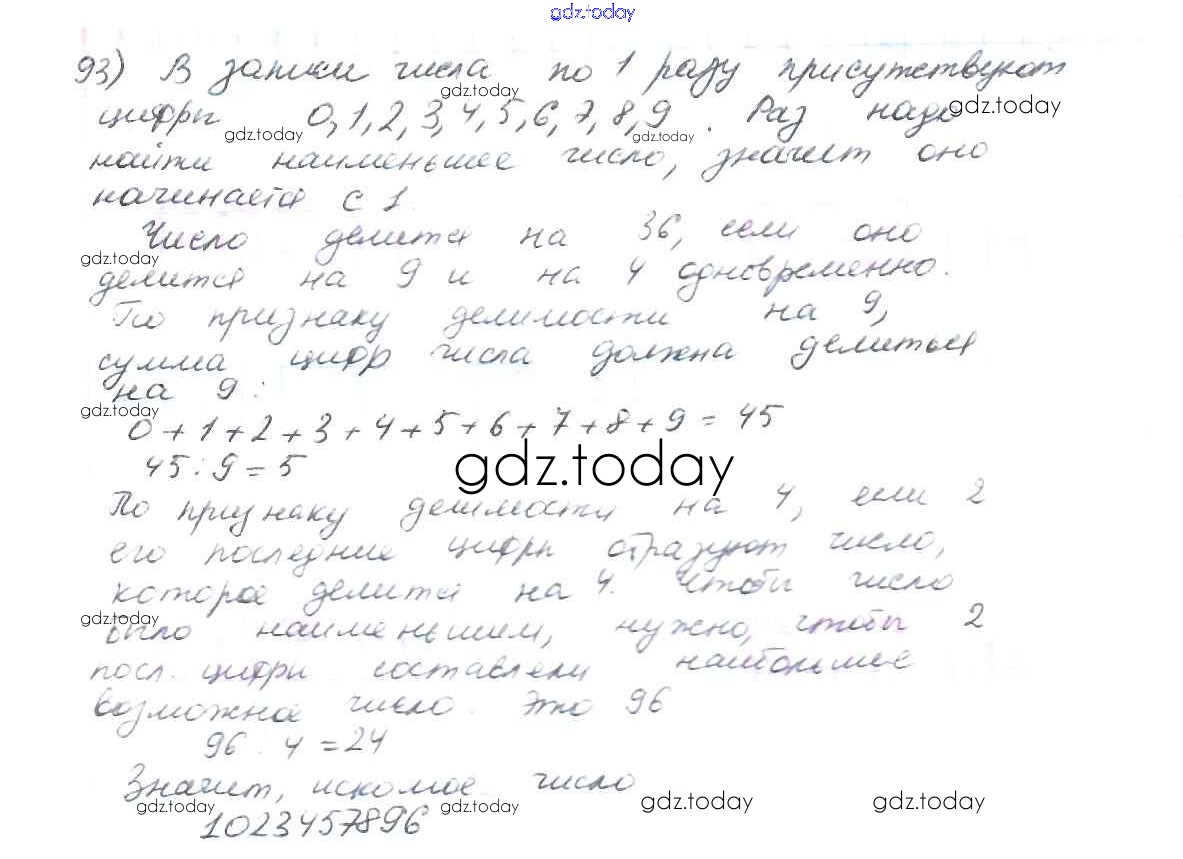 gdz.today
93) В записи числа по 1 разу присутствуют
gdz.today
цифры 0,1,2,3,4,5,6,7,8,9. Раз надо
gdz.today gdz.today gdz.today
найти наименьшее число, значит оно
начинается с 1.
Число делится на 36, если оно
gdz.today
делится на 9 и на 4 одновременно.
По признаку делимости на 9,
сумма цифр числа должна делиться
на 9:
gdz.today
0+1+2+3+4+5+6+7+8+9=45
45:9=5
gdz.today
По признаку делимости на 4, если 2
его последние цифры образуют число,
которое делится на 4. Чтобы число
gdz.today
было наименьшим, нужно, чтобы 2
посл. цифры составляли наибольшее
возможное число. Это 96
96:4=24
Значит, искомое число
gdz.today gdz.today gdz.today gdz.today
1023457896